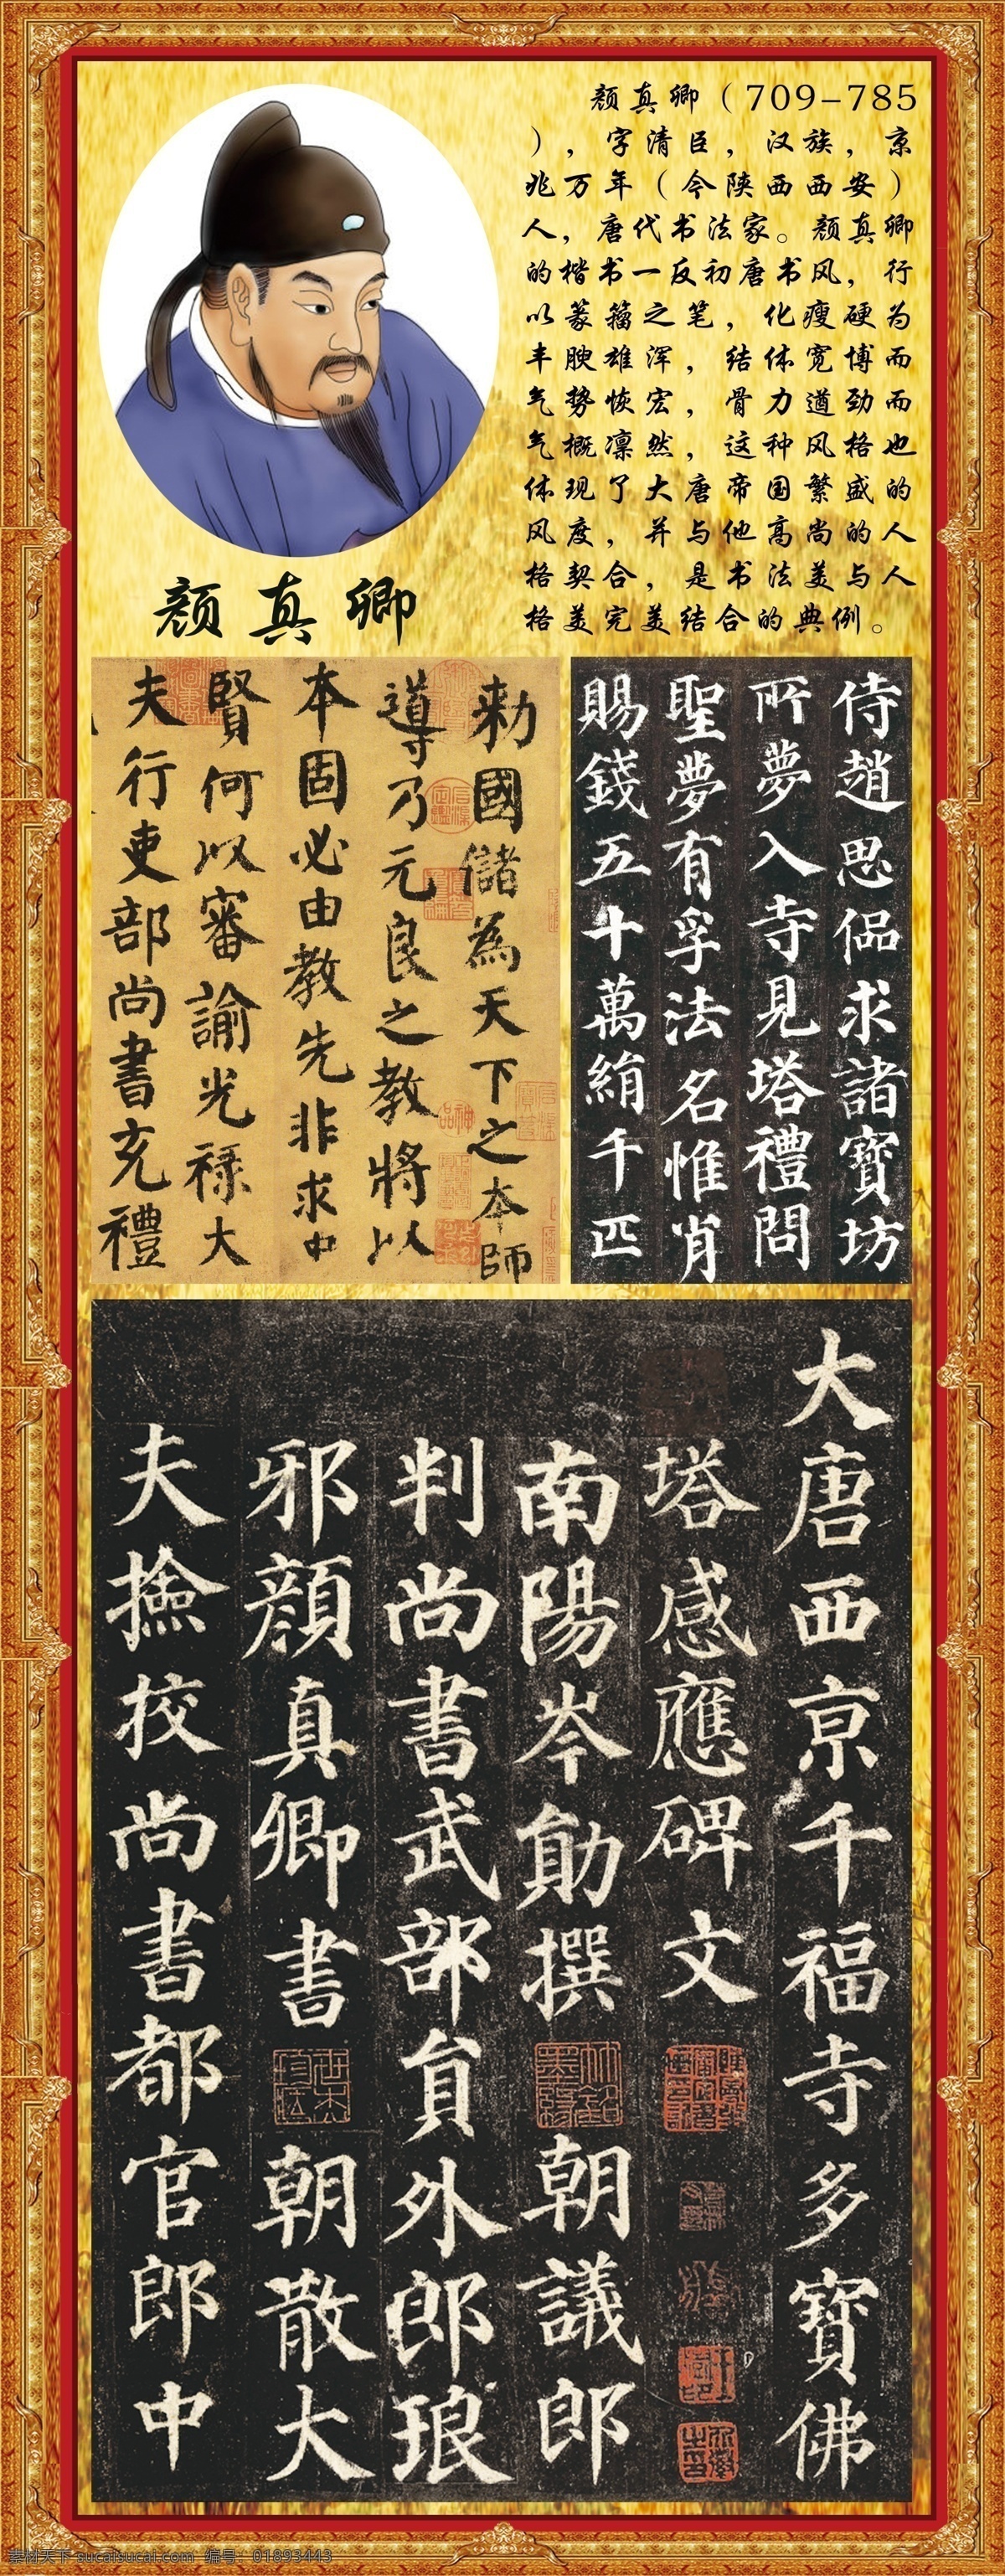 颜真卿（709-785
），字清臣，汉族，京
兆万年（今陕西西安）
人，唐代书法家。颜真卿
的楷书一反初唐书风，行
以篆籀之笔，化瘦硬为
丰腴雄浑，结体宽博而
气势恢宏，骨力遒劲而
气概凛然，这种风格也
体现了大唐帝国繁盛的
风度，并与他高尚的人
格契合，是书法美与人
格美完美结合的典例。
颜真卿
勑國儲為天下之本師
導乃元良之教將以
本固必由教先非求中
賢何以審諭光禄大
夫行吏部尚書充禮
侍趙思偘求諸寶坊
所夢入寺見塔禮問
聖夢有孚法名惟肖
賜錢五十萬絹千匹
大唐西京千福寺多寶佛
塔感應碑文
南陽岑勛撰 朝議郎
判尚書武部員外郎琅
邪顔真卿書 朝散大
夫撿挍尚書都官郎中
素材天下 sucaisucai.com 编号：01893443